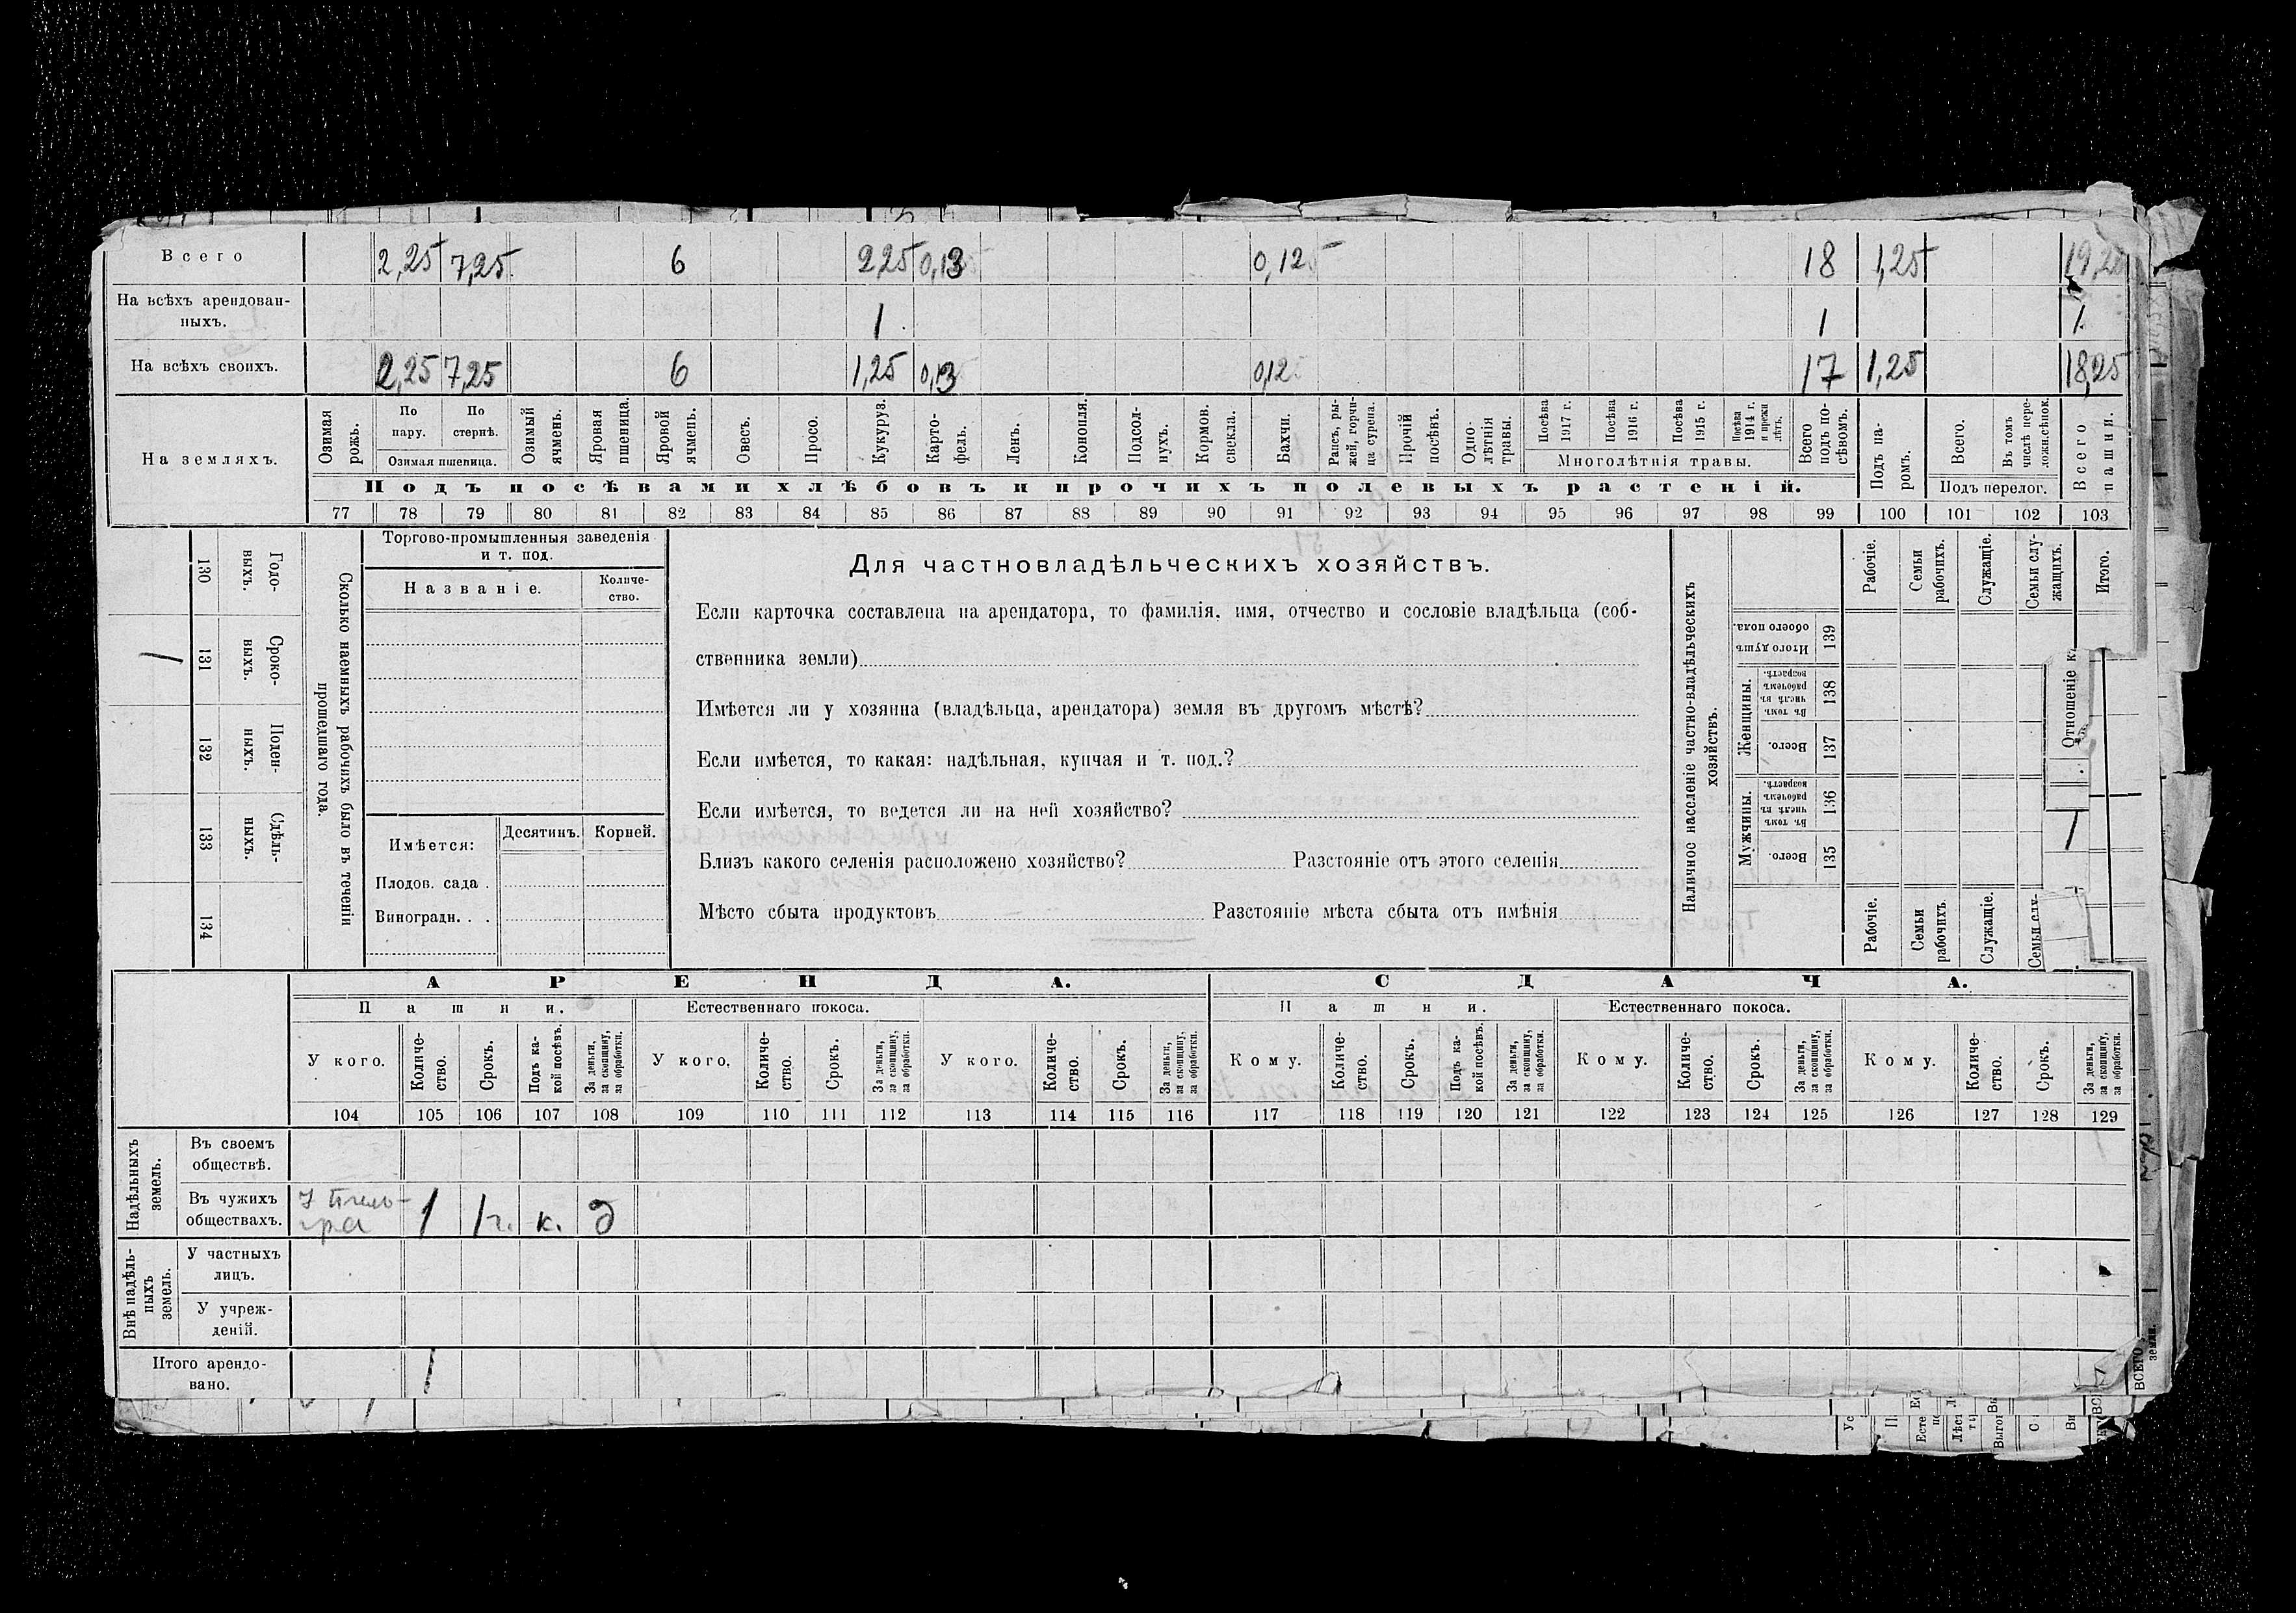 Всего 2,25 7,25 6 2,25 0,13 0,12 18 1,25
На всѣхъ арендован-
ныхъ. 1 1 1
На всѣхъ своихъ. 2,25 7,25 6 1,25 0,13 0,12 17 1,25 18,25
На земляхъ.
Озимая
рожь.
По
пару.
По
стернѣ.
Озимая пшеница.
Озимый
ячмень.
Яровая
пшеница.
Яровой
ячмень.
Овесъ.
Просо.
Кукуруз.
Карто-
фель.
Ленъ.
Конопля.
Подсол-
нухъ.
Кормов.
свекла.
Бахчи.
Рапсъ, ры-
жей, горчи-
ца сурепа.
Прочій
посѣвъ.
Одно-
лѣтнія
травы.
Посѣва
1917 г.
Посѣва
1916 г.
Посѣва
1915 г.
Посѣва
1914 г.
и прежн
лѣтъ.
Многолѣтнія травы.
Всего
подъ по-
сѣвомъ.
Подъ па-
ромъ.
Всего.
Въ томъ
числѣ пере-
ложн.сѣнок.
Подъ перелог.
Всего
пашни.
Подъ посѣвами хлѣбовъ и прочихъ полевыхъ растеній.
77 78 79 80 81 82 83 84 85 86 87 88 89 90 91 92 93 94 95 96 97 98 99 100 101 102 103
130 Годо-
выхъ.
1 131 Сроко-
ныхъ.
132 Поден-
ныхъ.
133 Сдѣль-
ныхъ.
134
Сколько наемныхъ рабочихъ было въ теченіи
прошедшаго года.
Торгово-промышленныя заведенія
и т. под.
Названіе.
Количе-
ство.
Имѣется: Десятинъ. Корней.
Плодов. сада .
Виноградн. . .
Для частновладѣльческихъ хозяйствъ.
Если карточка составлена на арендатора, то фамилія, имя, отчество и сословіе владѣльца (соб-
ственника земли)
Имѣется ли у хозяина (владѣльца, арендатора) земля въ другомъ мѣстѣ?
Если имѣется, то какая: надѣльная, купчая и т. под.?
Если имѣется, то ведется ли на ней хозяйство?
Близъ какого селенія расположено хозяйство? Разстояніе отъ этого селенія
Мѣсто сбыта продуктовъ Разстояніе мѣста сбыта отъ имѣнія
Наличное населеніе частно-владѣльческихъ
хозяйствъ.
Рабочіе.
Семьи
рабочихъ.
Служащіе.
Семьи слу-
жащихъ.
Итого.
Итого душъ
обоего пола.
139
Женщины.
Въ томъ
числѣ въ
рабочемъ
возрастѣ.
138
Всего.
137
Мужчины.
Въ томъ
числѣ въ
рабочемъ
возрастѣ.
136
Всего.
135
Рабочіе.
Семьи
рабочихъ.
Служащіе.
Семьи слу-
Отношеніе к
1
АРЕНДА.
СДАЧА.
Пашни. Естественнаго покоса. Пашни. Естественнаго покоса.
У кого.
Количе-
ство.
Срокъ.
Подъ ка-
кой посѣвъ.
За деньги,
за скопщину,
за обработки.
У кого,
Количе-
ство.
Срокъ.
За деньги,
за скопщину,
за обработки.
У кого.
Количе-
ство.
Срокъ.
За деньги,
за скопщину,
за обработки.
Кому.
Количе-
ство.
Срокъ.
Подъ ка-
кой посѣвъ.
За деньги,
за скопщину,
за обработки.
Кому.
Количе-
ство.
Срокъ.
За деньги,
за скопщину,
за обработки.
Кому.
Количе-
ство.
Срокъ.
За деньги,
за скопщину,
за обработки.
104 105 106 107 108 109 110 111 112 113 114 115 116 117 118 119 120 121 122 123 124 125 126 127 128 129
Надѣльныхъ
земель.
Въ своемъ
обществѣ.
Въ чужихъ
обществахъ. 1 1 г. к. д
Внѣ надѣль-
ныхъ
земель.
У частныхъ
лицъ.
У учреж-
деній.
Итого арендо-
вано. 1
ВСЕГО
земли.